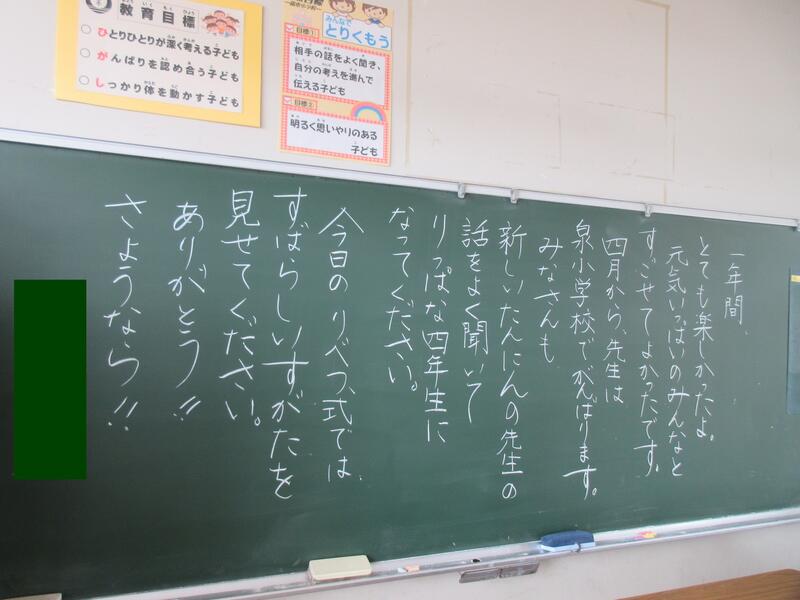 教育目標
○ ひとりひとりが深く考える子ども
○ がんばりを認め合う子ども
○ しっかり体を動かす子ども
みんなで
とりくもう
目標1
相手の話をよく聞き、
自分の考えを進んで
伝える子ども
目標2
明るく思いやりのある
子ども
一年間、
とても楽しかったよ。
元気いっぱいのみんなと
すごせてよかったです。
四月から、先生は
泉小学校でがんばります。
みなさんも
新しいたんにんの先生の
話をよく聞いて
りっぱな四年生に
なってください。
今日のりべつ式では、
すばらしいすがたを
見せてください。
ありがとう!!
さようなら!!